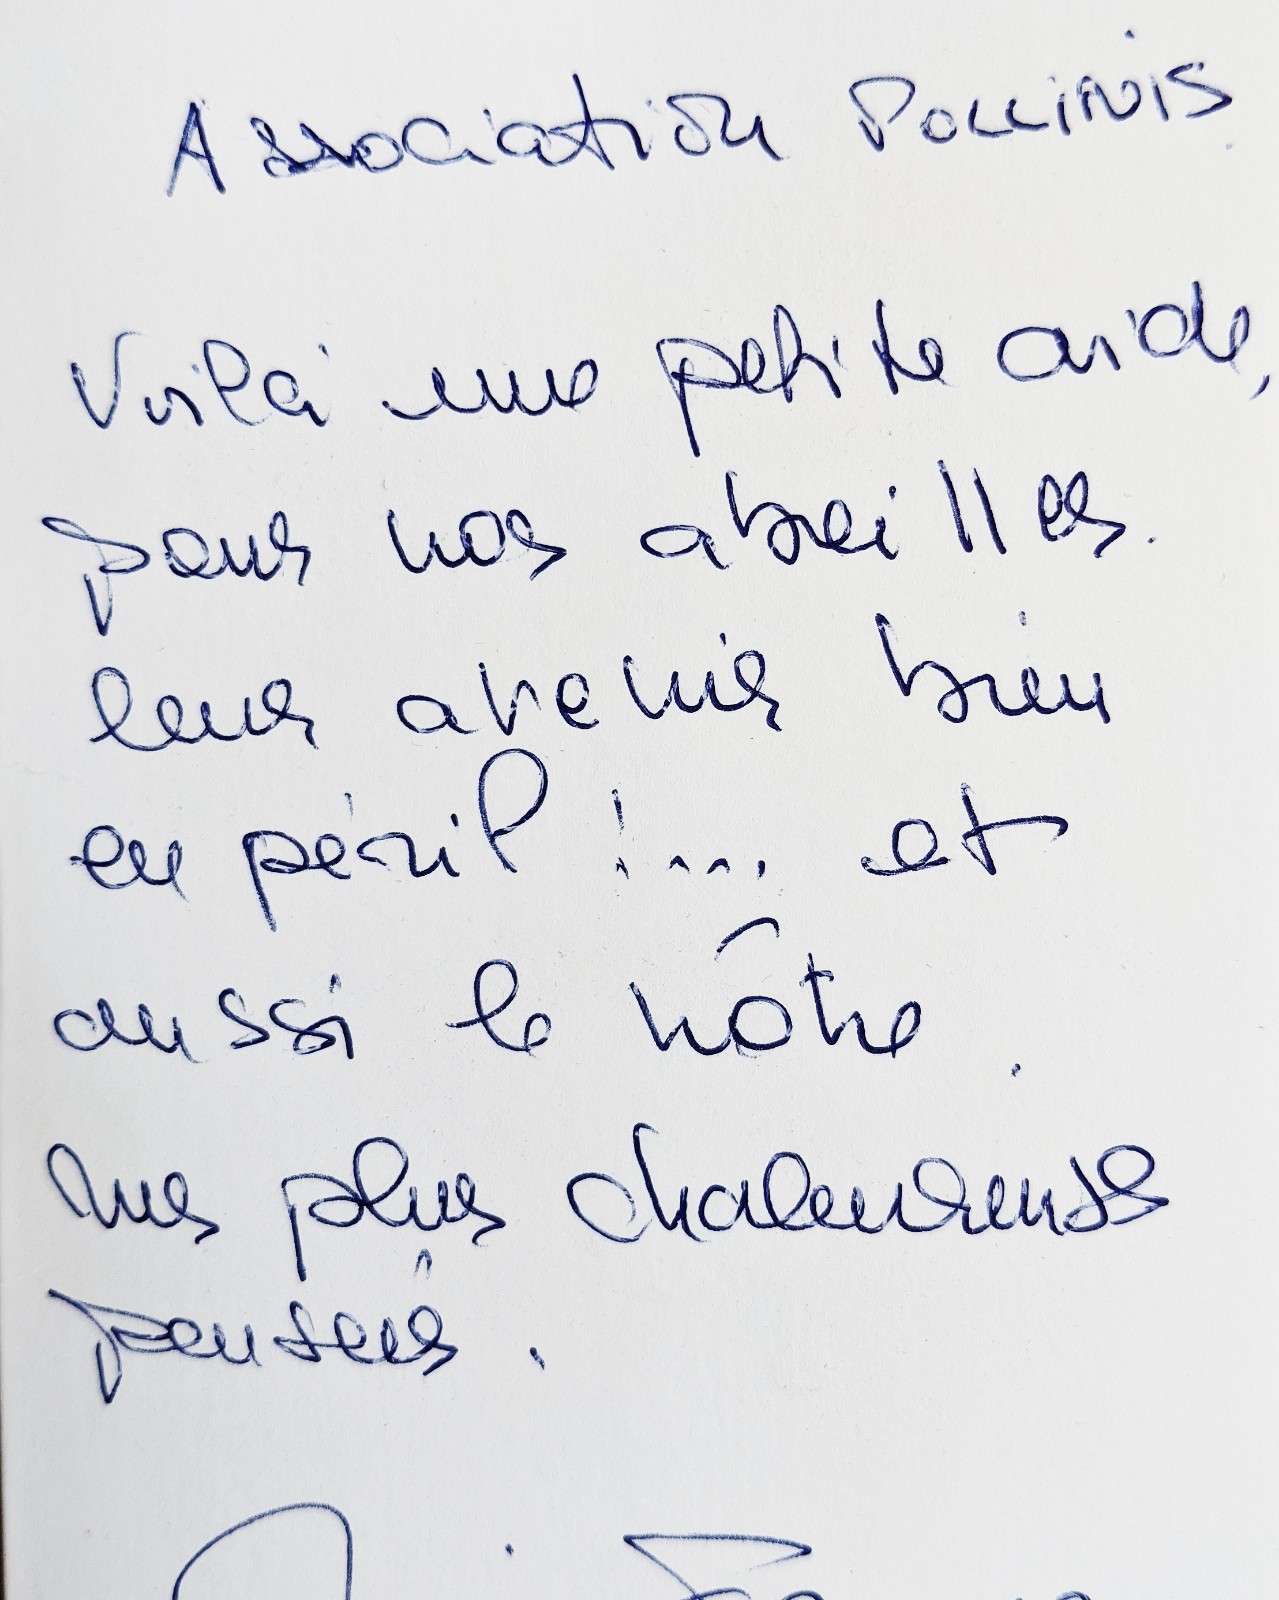 Association POLLINIS.
Voilà une petite aide,
pour nos abeilles.
leur avenir bien
en péril !... et
aussi le nôtre.
Mes plus chaleureuses
pensées.